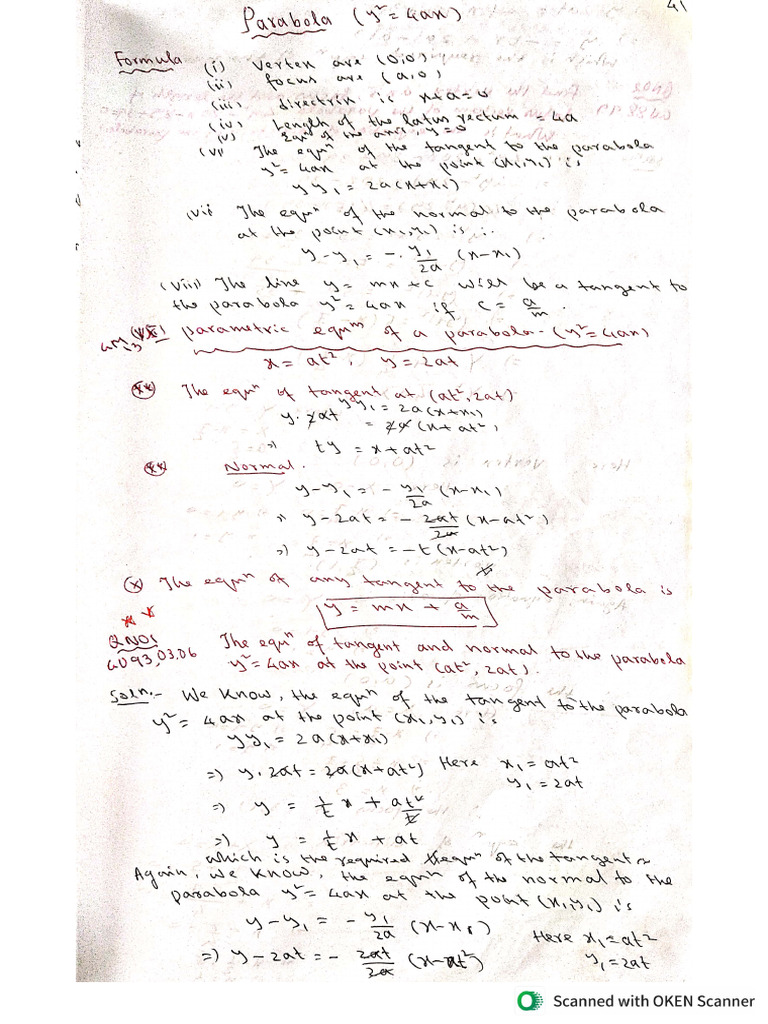 41
Parabola (y² = 4ax)
Formula (i) Vertex are (0,0)
(ii) focus are (a,0)
(iii) directrix is x+a=0
(iv) Length of the latus rectum = 4a
(v) Equⁿ of the axis y=0
(vi) The equⁿ of the tangent to the parabola
y² = 4ax at the point (x₁,y₁) is
yy₁ = 2a(x+x₁)
(vii) The equⁿ of the normal to the parabola
at the point (x₁,y₁) is :.
y-y₁ = - y₁/2a (x-x₁)
(viii) The line y = mx+c will be a tangent to
the parabola y² = 4ax if c = a/m.
parametric equⁿ of a parabola- (y²=4ax)
x = at², y = 2at
(**) The equⁿ of tangent at (at², 2at)
yy₁ = 2a(x+x₁)
y. 2at = 2a (x+at²)
=) ty = x+at²
(**) Normal.
y-y₁ = - y₁/2a (x-x₁)
=) y-2at = - 2at/2a (x-at²)
=) y-2at = -t(x-at²)
(x) The equⁿ of any tangent to the parabola is
y = mx + a/m
QNO1 The equⁿ of tangent and normal to the parabola
93,03,06 y² = 4ax at the point (at², 2at).
Soln:- We know, the equⁿ of the tangent to the parabola
y² = 4ax at the point (x₁,y₁) is
yy₁ = 2a(x+x₁)
=) y.2at = 2a(x+at²) Here x₁ = at²
y₁ = 2at
=) y = 1/t x + at²/t
=) y = 1/t x + at
which is the required equⁿ of the tangent
Again, we know, the equⁿ of the normal to the
parabola y² = 4ax at the point (x₁,y₁) is
y-y₁ = - y₁/2a (x-x₁)
Here x₁ = at²
=) y-2at = - 2at/2a (x-at²) y₁ = 2at
Scanned with OKEN Scanner